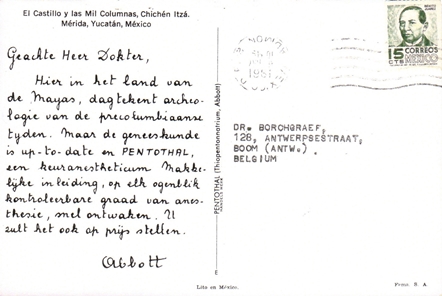 El Castillo y las Mil Columnas, Chichén Itzá.
Mérida, Yucatán, México
Geachte Heer Dokter,
Hier in het land van
de Mayas, dagtekent archeo-
logie van de precolumbiaanse
tyden. Maar de geneeskunde
is up-to-date en PENTOTHAL,
een keuranestheticum Makke-
lijke inleiding, op elk ogenblik
kontroleerbare graad van anes-
thesie, snel ontwaken. U
zult het ook op prijs stellen.
Abbott
PENTOTHAL (Thiopentonnatrium, Abbott)
BENITO
JUAREZ
15 CORREOS
CTS MEXICO
DR. BORCHGRAEF,
128, ANTWERPSESTRAAT,
BOOM (ANTW.)
BELGIUM
E
Lito en México.